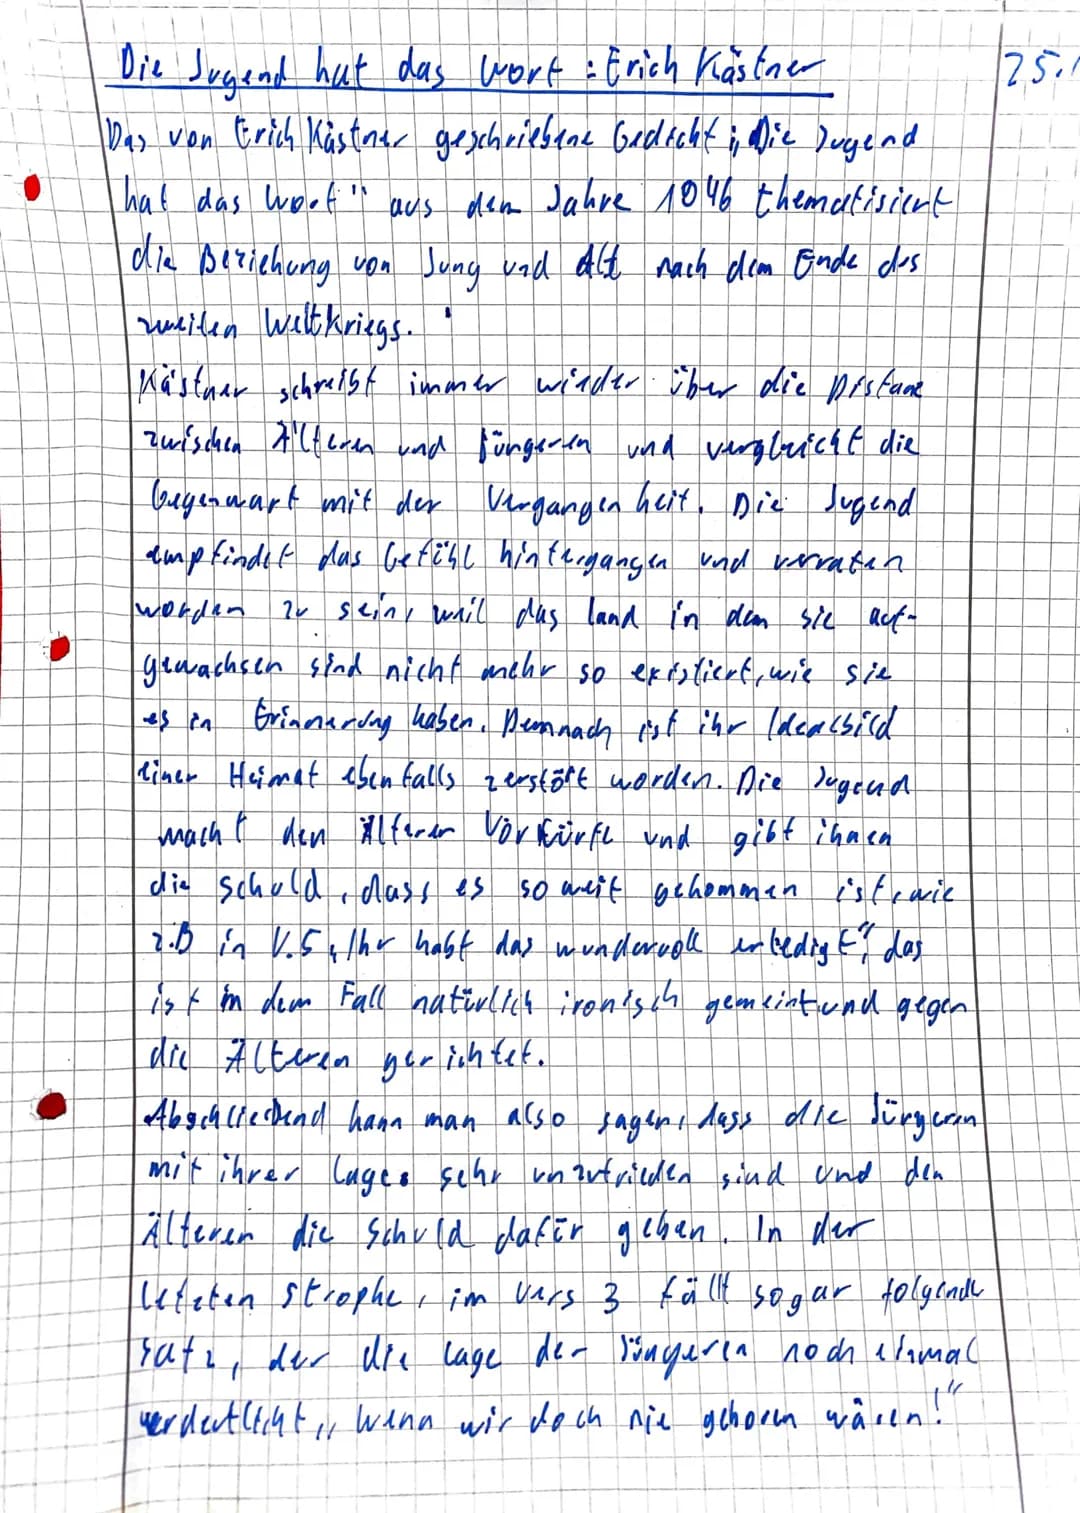 Die Jugend hat das Wort : Erich Kästner
25.1
Das von Erich Kästner geschriebene Gedicht „Die Jugend
hat das Wort" aus dem Jahre 1946 thematisiert
die Beziehung von Jung und Alt nach dem Ende des
zweiten Weltkriegs.
Kästner schreibt immer wieder über die Distanz
zwischen Älteren und Jüngeren und vergleicht die
Gegenwart mit der Vergangenheit. Die Jugend
empfindet das Gefühl hintergangen und verraten
worden zu sein, weil das land in dem sie auf-
gewachsen sind nicht mehr so existiert, wie sie
es in Erinnerung haben. Demnach ist ihr Idealbild
einer Heimat ebenfalls zerstört worden. Die Jugend
macht den Älteren Vorwürfe und gibt ihnen
die Schuld, dass es so weit gekommen ist, wie
z.B in V.5 „Ihr habt das wundervoll erledigt", das
ist in dem Fall natürlich ironisch gemeint und gegen
die Älteren gerichtet.
Abschließend kann man also sagen, dass die Jüngeren
mit ihrer Lage sehr unzufrieden sind und den
Älteren die Schuld dafür geben. In der
letzten Strophe, im Vers 3 fällt sogar folgende
Satz, der die Lage der Jüngeren noch einmal
verdeutlicht „Wenn wir doch nie geboren wären!"